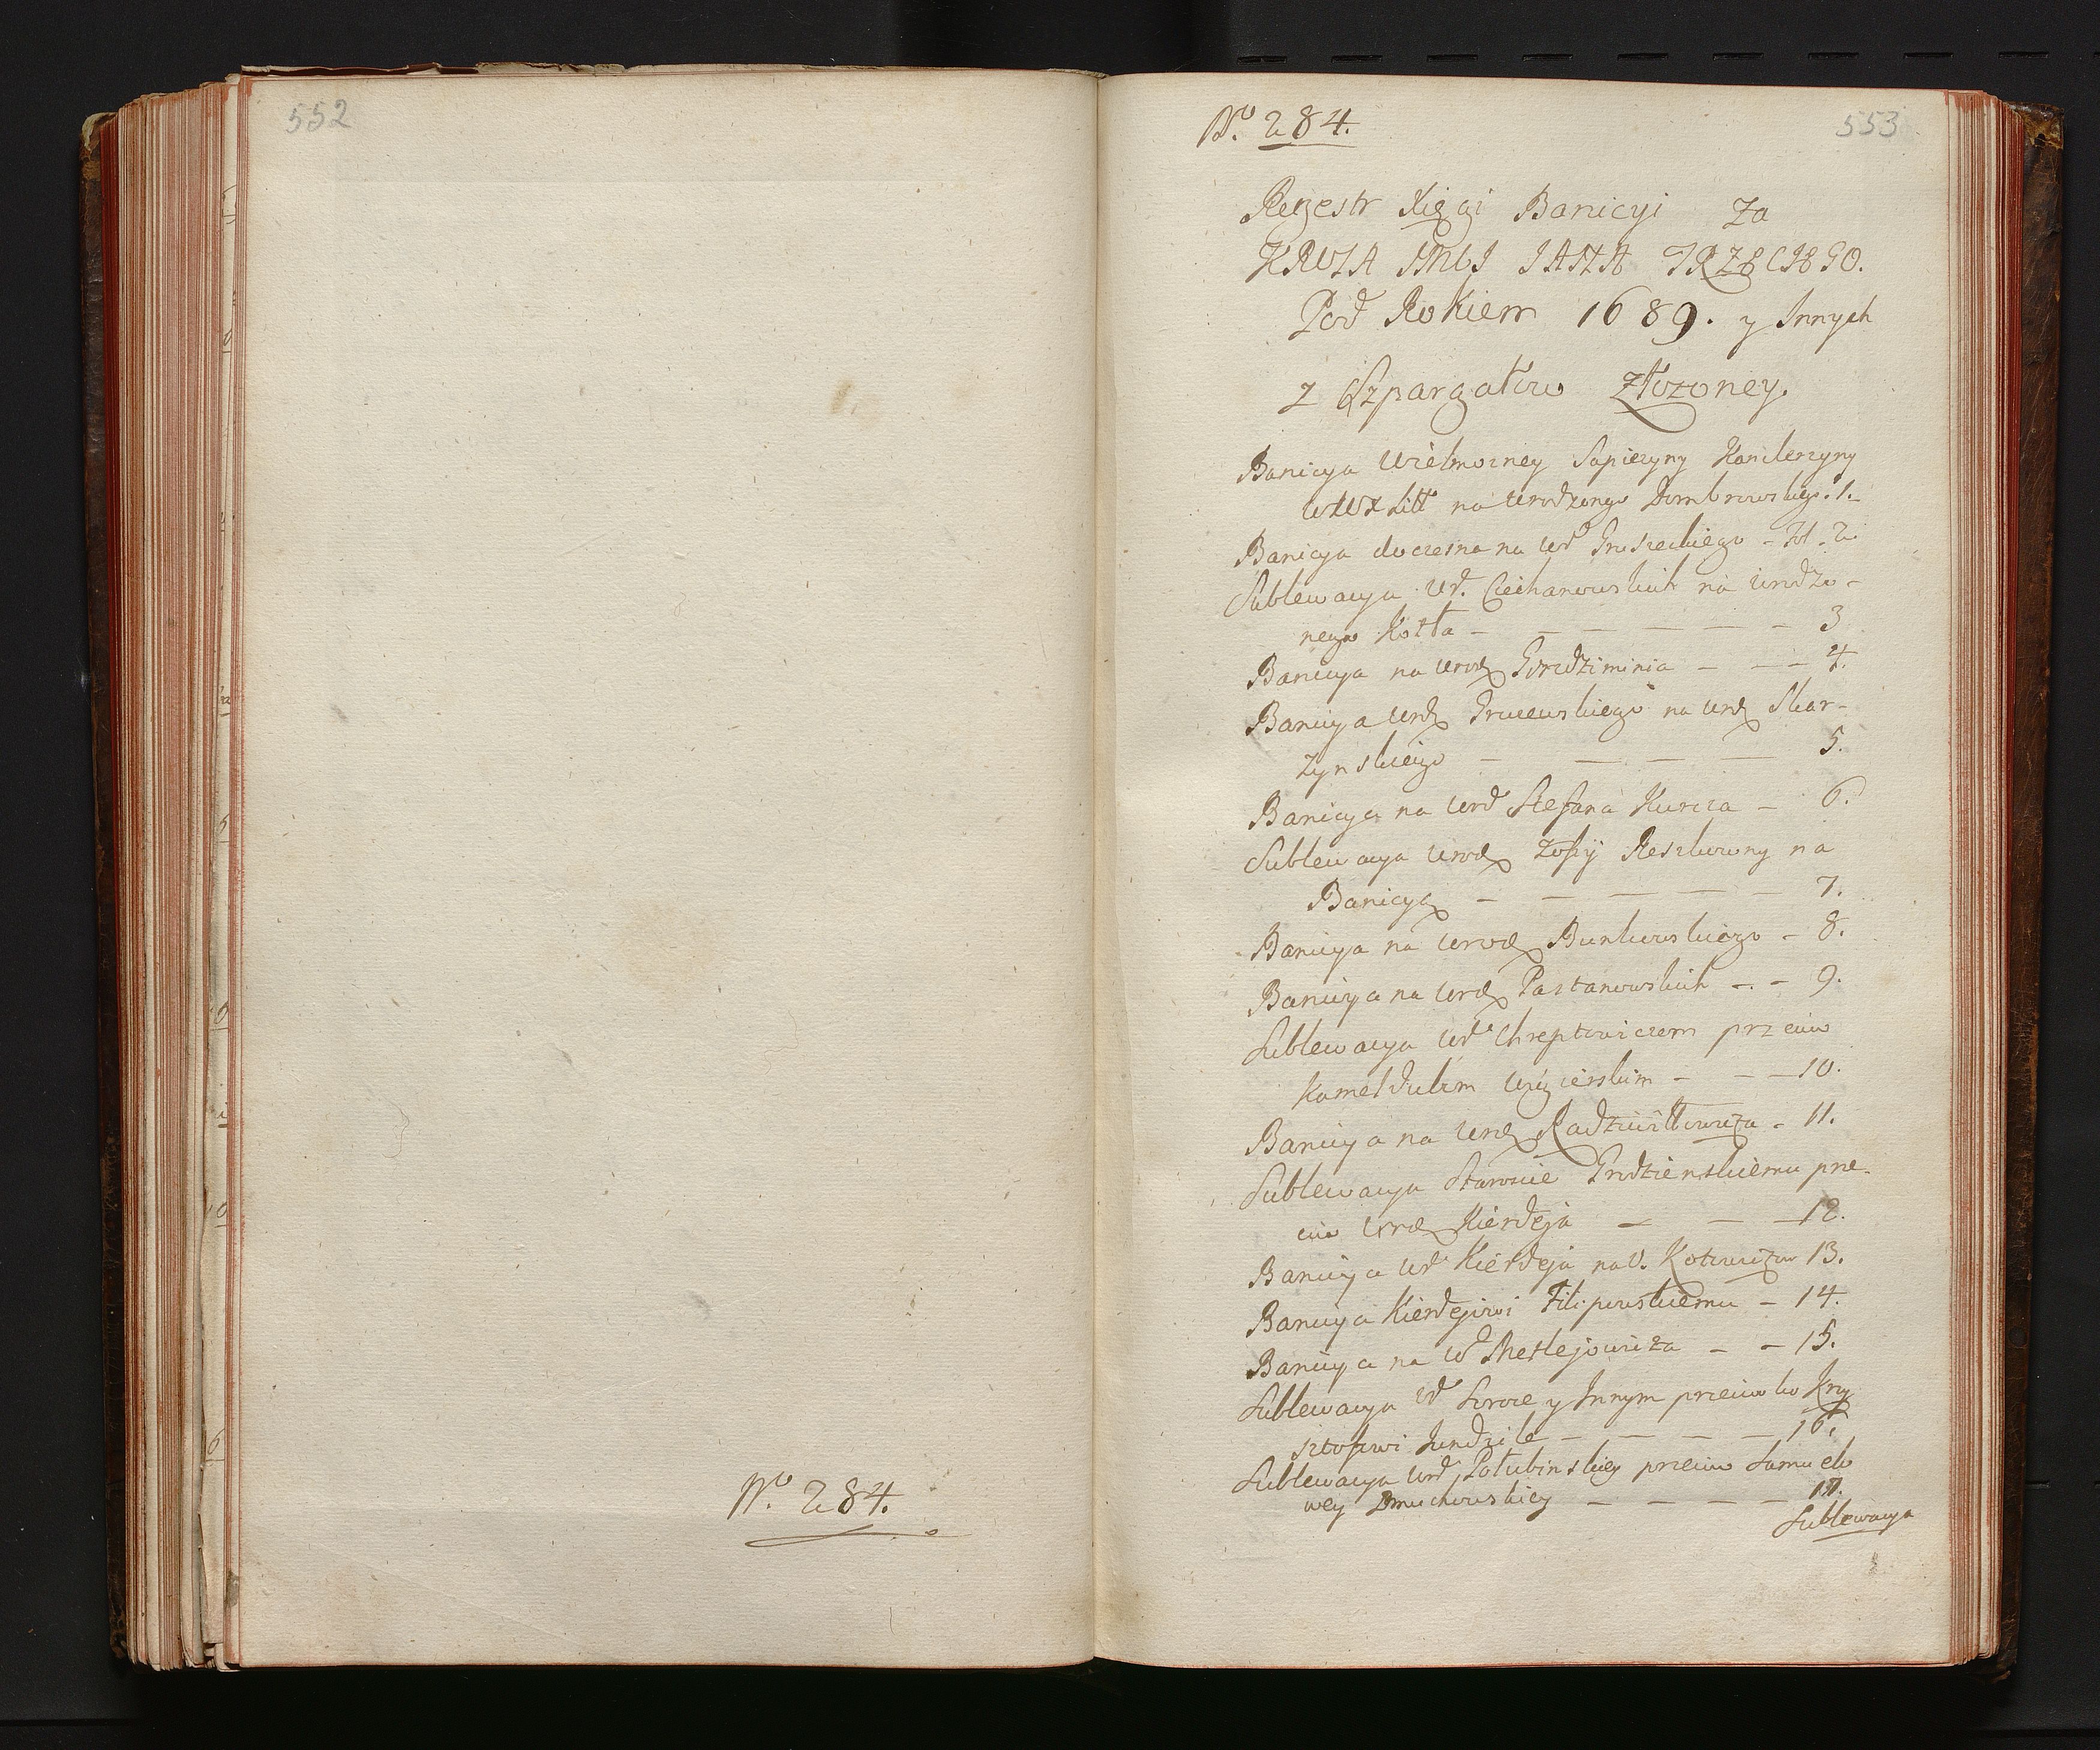 552
Nº. 284.
Nº. 284.
553
Regestr Xięgi Banicyi Za
KRULA IMCI IANA TRZECIEGO.
Pod Rokiem 1689. y Innych
z Szpargałow złozoney.
Banicya Wielmozney Sapiezyny Kanclerzyny
WXLitt na Urodzonego Dombrowskiego. 1.
Banicya doczesna na Urd Gruszeckiego - fol. 2.
Sublewacya Ur. Ciechanowskich na urodzo-
nego Kotła - - - - - - 3
Banicya na Urodz Giedziminia - - - 4.
Banicya Urdz Gruzewskiego na Urdz Skar-
zynskiego - - - - 5.
Banicya na Urd Stefana Kurcza - 6.
Sublewacya Urodz Zofij Reszkowny na
Banicyą - - - - - - 7.
Banicya na Urodz Bunkowskiego - 8.
Banicya na Urdz Pastanowskich - - 9.
Sublewacya Urd Chreptowiczem przeciw
Kameldulom Wigierskim - - - 10.
Banicya na Urdz Radziwiłłowicza - 11.
Sublewacya Staroscie Grodzienskiemu prze-
ciw Urdz Kierdeja - - - 12.
Banicya Urd Kierdeja na U. Kotowiczow 13.
Banicya Kierdejowi Filipowskiemu - 14.
Banicya na U Metlejowicza - - 15.
Sublewacya Ud y Innym przeciwko Krzy
sztofowi Jundzile - - - - - 16.
Sublewacya Urd Połubinskiey przeciw Samuelo
wey Dmuchowskiey - - - - - 17.
Sublewacya